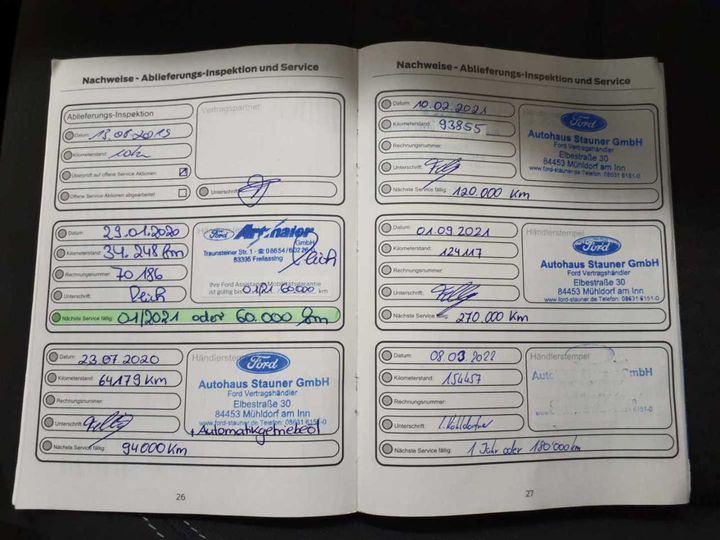 Nachweise - Ablieferungs-Inspektion und Service
Ablieferungs-Inspektion
Vertragspartner
Datum:
Kilometerstand:
Überprüft auf offene Service Aktionen
Offene Service Aktionen abgearbeitet
Unterschrift
Datum: 29.01.2020
Kilometerstand: 34.248 km
Rechnungsnummer: 70186
Unterschrift:
Nächste Service fällig: 01/2021 oder 60.000 km
Ford
GmbH
Traunsteiner Str. 1
83395 Freilassing
01/21 60.000 km
Datum: 23.07.2020
Kilometerstand: 64179 Km
Rechnungsnummer:
Unterschrift:
Nächste Service fällig: 94000 Km
Händlerstempel
Ford
Autohaus Stauner GmbH
Ford Vertragshändler
Elbestraße 30
84453 Mühldorf am Inn
www.ford-stauner.de Telefon: 08631 6151-0
+ Automatikgetriebeöl
26
Nachweise - Ablieferungs-Inspektion und Service
Datum: 10.02.2021
Kilometerstand: 93855
Rechnungsnummer:
Unterschrift:
Nächste Service fällig: 120.000 Km
Ford
Autohaus Stauner GmbH
Ford Vertragshändler
Elbestraße 30
84453 Mühldorf am Inn
www.ford-stauner.de Telefon: 08631 6151-0
Datum: 01.09.2021
Kilometerstand: 124117
Rechnungsnummer:
Unterschrift:
Nächste Service fällig: 270.000 Km
Händlerstempel
Ford
Autohaus Stauner GmbH
Ford Vertragshändler
Elbestraße 30
84453 Mühldorf am Inn
www.ford-stauner.de Telefon: 08631 6151-0
Datum: 08 03 2022
Kilometerstand: 154457
Rechnungsnummer:
Unterschrift:
Nächste Service fällig: 1 Jahr oder 180'000 km
Händlerstempel
27